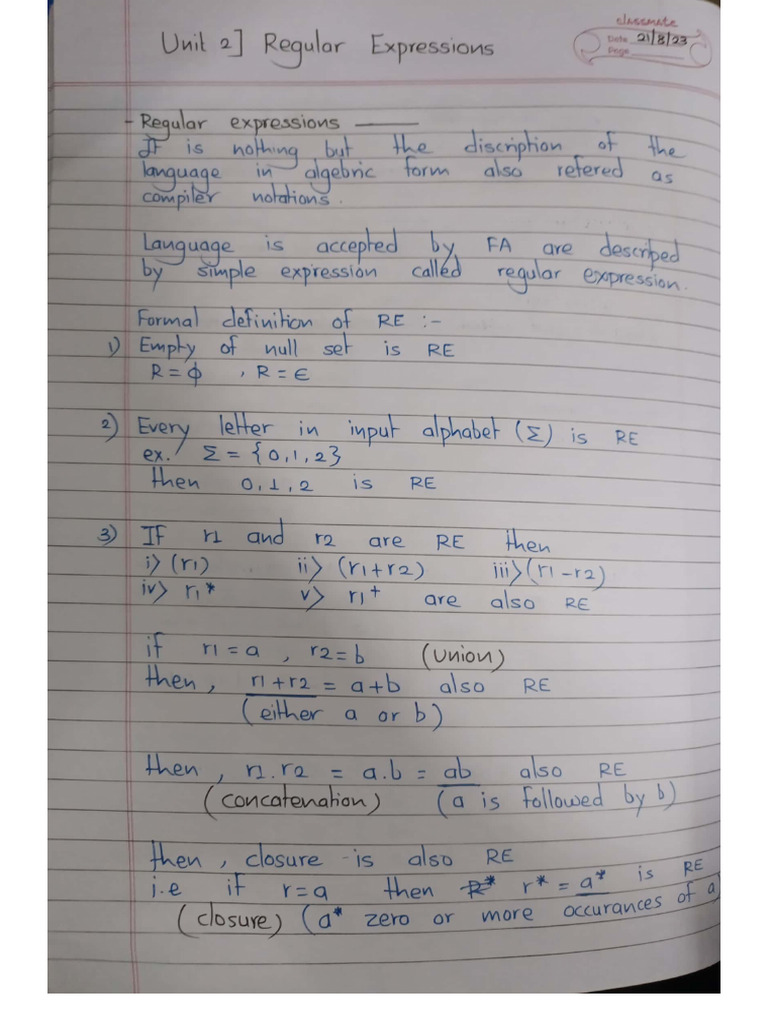 classmate
Date 21/8/23
Page
Unit 2] Regular Expressions
- Regular expressions ———
It is nothing but the discription of the
language in algebric form also refered as
compiler notations.
Language is accepted by FA are described
by simple expression called regular expression.
Formal definition of RE :-
1) Empty of null set is RE
R = ϕ , R = ϵ
2) Every letter in input alphabet (Σ) is RE
ex. Σ = {0,1,2}
then 0,1,2 is RE
3) If r1 and r2 are RE then
i> (r1) ii> (r1+r2) iii> (r1-r2)
iv> r1* v> r1+ are also RE
if r1 = a , r2 = b (union)
then, r1+r2 = a+b also RE
(either a or b)
then, r1.r2 = a.b = ab also RE
(concatenation) (a is followed by b)
then, closure is also RE
i.e if r=a then R* r* = a* is RE
(closure) (a* zero or more occurances of a)